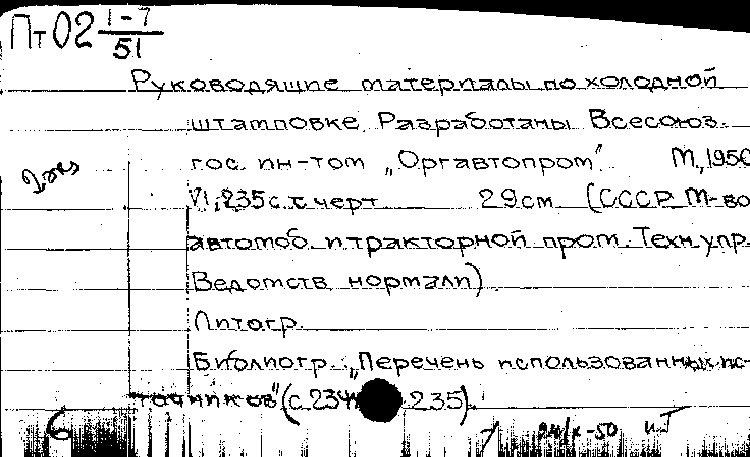 Пт 02 1-7/51
Руководящие материалы по холодной
штамповке. Разработаны Всесоюз.
гос. ин-том „Оргавтопром". М, 1950
VI, 235 с. с черт 29 см (СССР. М-во
автомоб. и тракторной пром. Техн упр.
Ведомств нормали)
Литогр.
Библиогр.: „Перечень использованных ис-
точников" (с. 234 235).
6